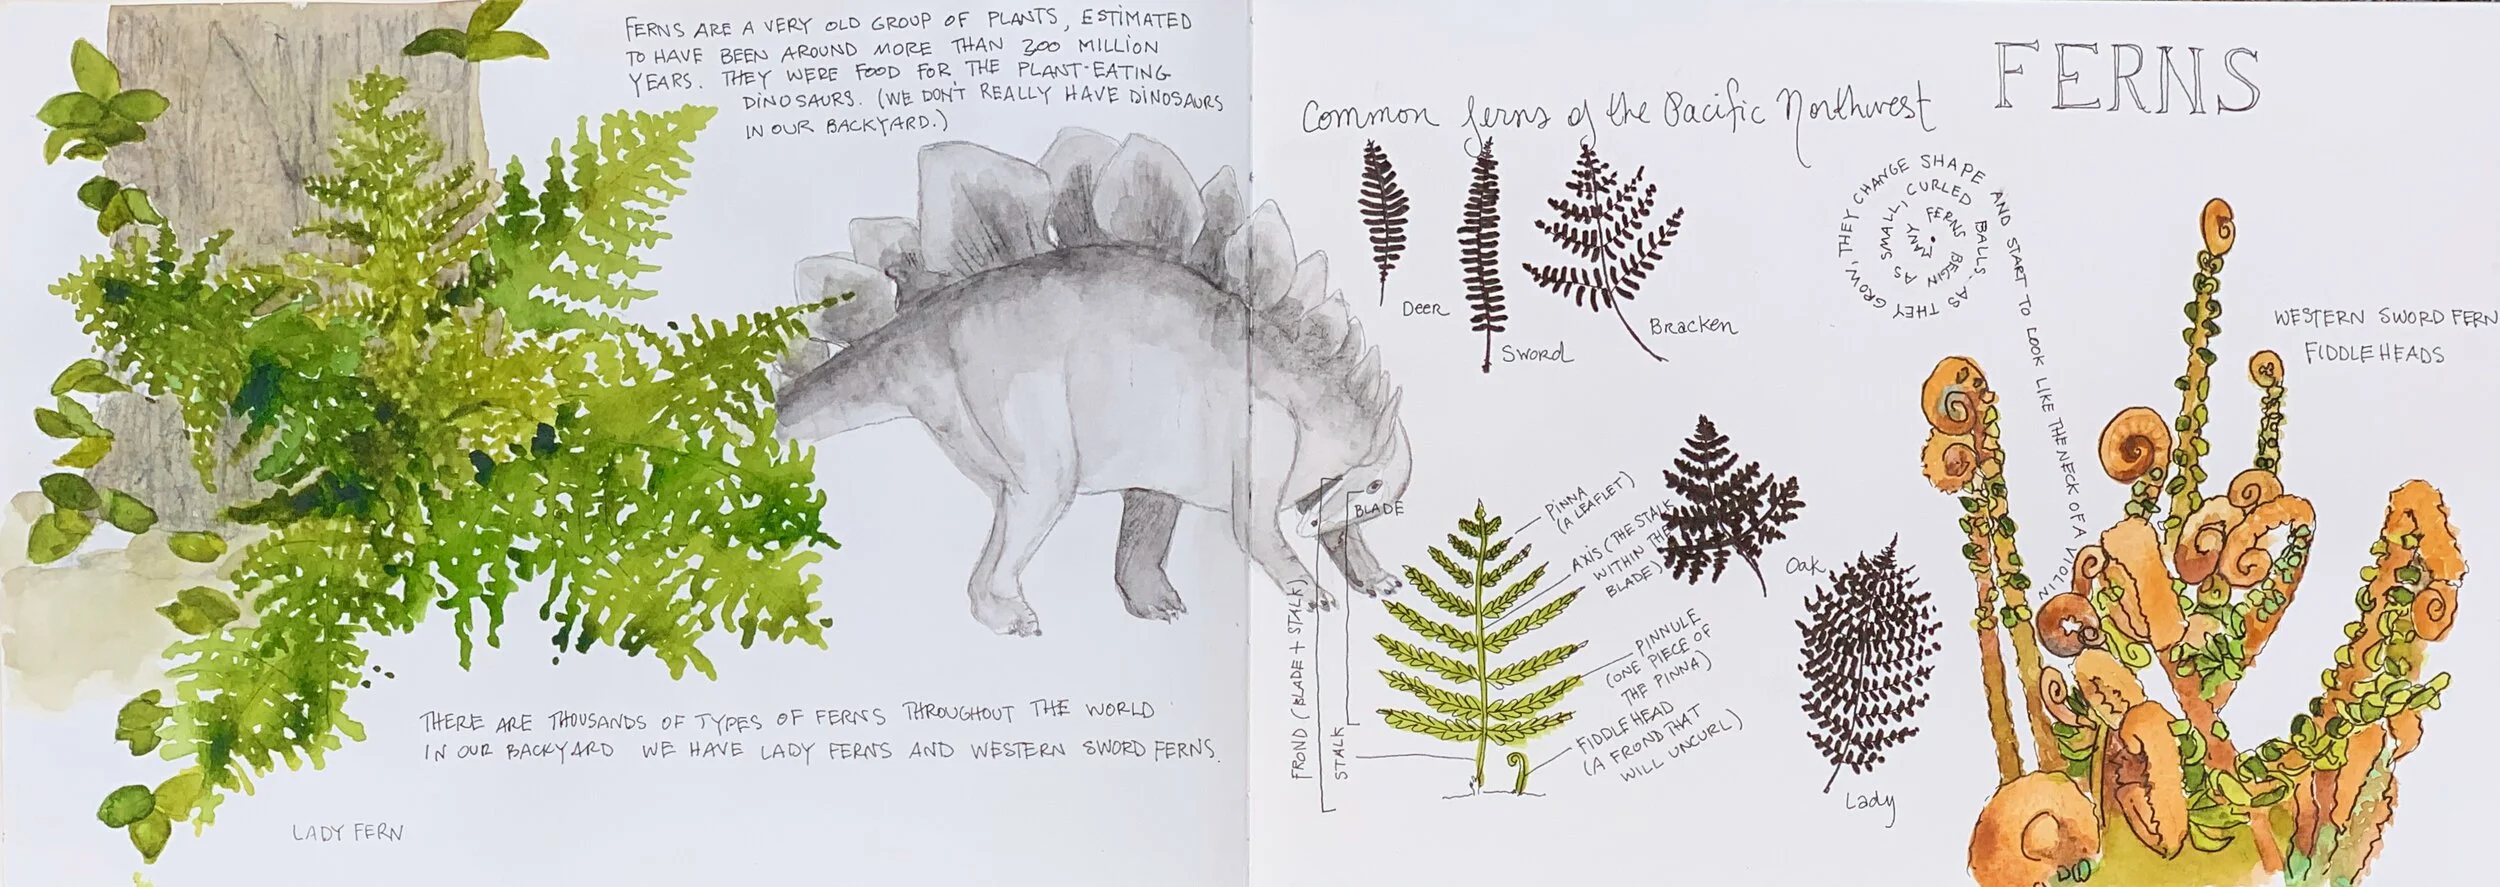 FERNS ARE A VERY OLD GROUP OF PLANTS, ESTIMATED
TO HAVE BEEN AROUND MORE THAN 300 MILLION
YEARS. THEY WERE FOOD FOR THE PLANT-EATING
DINOSAURS. (WE DON'T REALLY HAVE DINOSAURS
IN OUR BACKYARD.)
THERE ARE THOUSANDS OF TYPES OF FERNS THROUGHOUT THE WORLD
IN OUR BACKYARD WE HAVE LADY FERNS AND WESTERN SWORD FERNS.
LADY FERN
FERNS
Common ferns of the Pacific Northwest
Deer
Sword
Bracken
Oak
Lady
MANY FERNS BEGIN AS SMALL, CURLED BALLS. AS THEY GROW, THEY CHANGE SHAPE AND START TO LOOK LIKE THE NECK OF A VIOLIN
WESTERN SWORD FERN
FIDDLEHEADS
BLADE
FROND (BLADE + STALK)
STALK
PINNA
(A LEAFLET)
AXIS (THE STALK
WITHIN THE
BLADE)
PINNULE
(ONE PIECE OF
THE PINNA)
FIDDLEHEAD
(A FROND THAT
WILL UNCURL)